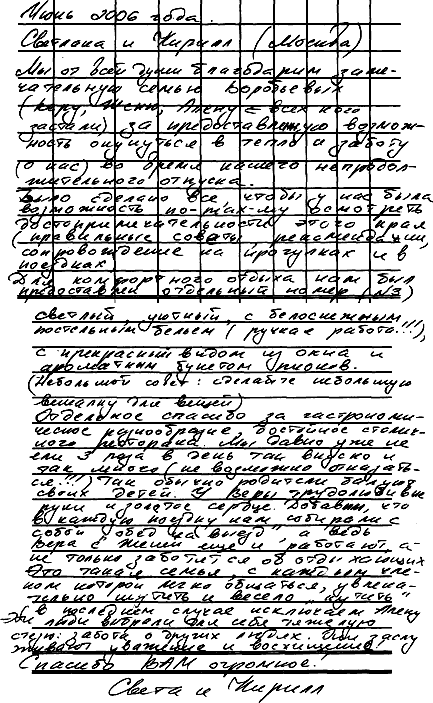 Июнь 2006 года.
Светлана и Кирилл (Москва)
Мы от всей души благодарим заме-
чательную семью Воробьевых
(Веру, Женю, Алену = всех кого
застали) за предоставленную возмож-
ность окунуться в тепло и заботу
(о нас) во время нашего непродол-
жительного отпуска.
Было сделано все, чтобы у нас была
возможность по-max-му осмотреть
достопримечательности этого края
(правильные советы, рекомендации,
сопровождение на прогулках и в
поездках
Для комфортного отдыха нам был
предоставлен отдельный номер (№3)
светлый, уютный, с белоснежным
постельным бельем (ручная работа!!!),
с прекрасным видом из окна и
ароматным букетом пионов.
(Небольшой совет: сделайте небольшую
вешалку для вещей)
Отдельное спасибо за гастрономи-
ческое разнообразие, достойное столич-
ного ресторана. Мы давно уже не
ели 3 раза в день так вкусно и
так много (невозможно отказать-
ся!!!) Так обычно родители балуют
своих детей. У Веры трудолюбивые
руки и золотое сердце. Добавлю, что
в каждую поездку нам собирали с
собой "обед на выезд" а ведь
Вера с Женей еще и работают, а
не только заботятся об отдыхающих
Это такая семья, с каждым чле-
ном которой легко общаться, увлека-
тельно шутить и весело "шутить"
(в последнем случае исключаем Алену
Эти люди выбрали для себя тяжелую
стезю: забота о других людях. Они заслу
живают уважение и восхищение.
Спасибо ВАМ огромное.
Света и Кирилл